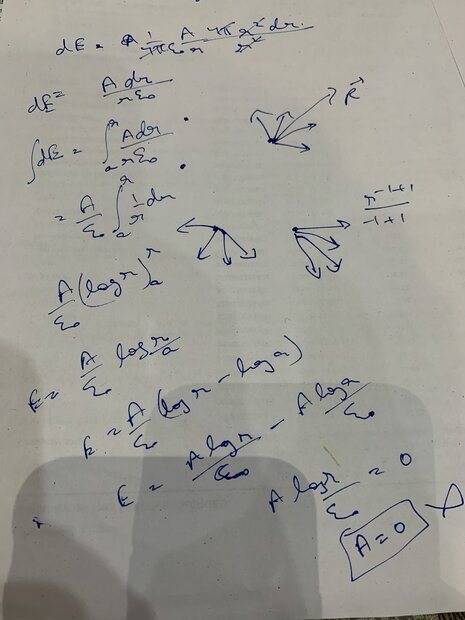 dE = 1/4πε₀ A/r 4π r² dr / r²
dE = A dr / r ε₀
∫dE = ∫ₐʳ A dr / r ε₀
= A/ε₀ ∫ₐʳ 1/r dr
R⃗
r⁻¹⁺¹ / -1+1
A/ε₀ (log r)ₐʳ
E = A/ε₀ log r/a
E = A/ε₀ (log r - log a)
E = A log r / ε₀ - A log r / ε₀
A log r / ε₀ = 0
A = 0